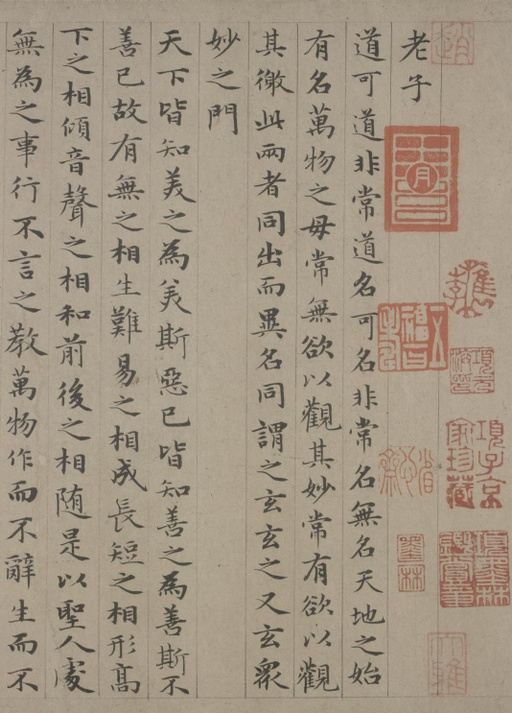 老子
道可道非常道名可名非常名無名天地之始
有名萬物之母常無欲以觀其妙常有欲以觀
其徼此兩者同出而異名同謂之玄玄之又玄衆
妙之門
天下皆知美之為美斯惡已皆知善之為善斯不
善已故有無之相生難易之相成長短之相形高
下之相傾音聲之相和前後之相随是以聖人處
無為之事行不言之教萬物作而不辭生而不
項子京
家珍藏